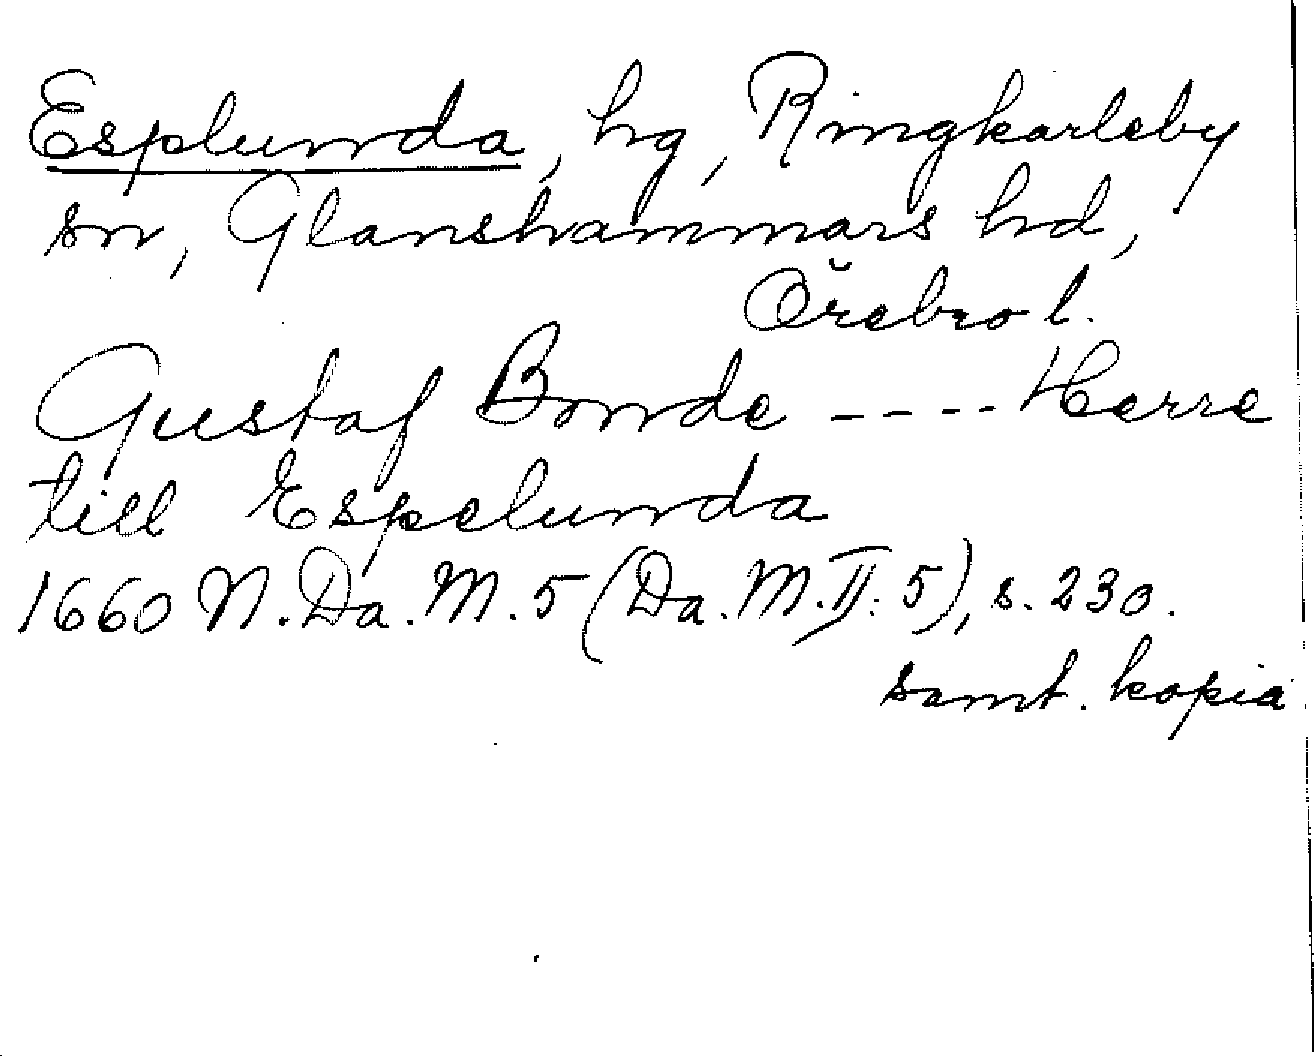 Esplunda, hg, Ringkarleby
sn, Glanshammars hd,
Örebro l.
Gustaf Bonde ---- Herre
till Espelunda
1660 N.Da.M.5 (Da.M.II:5), s.230.
samt. kopia